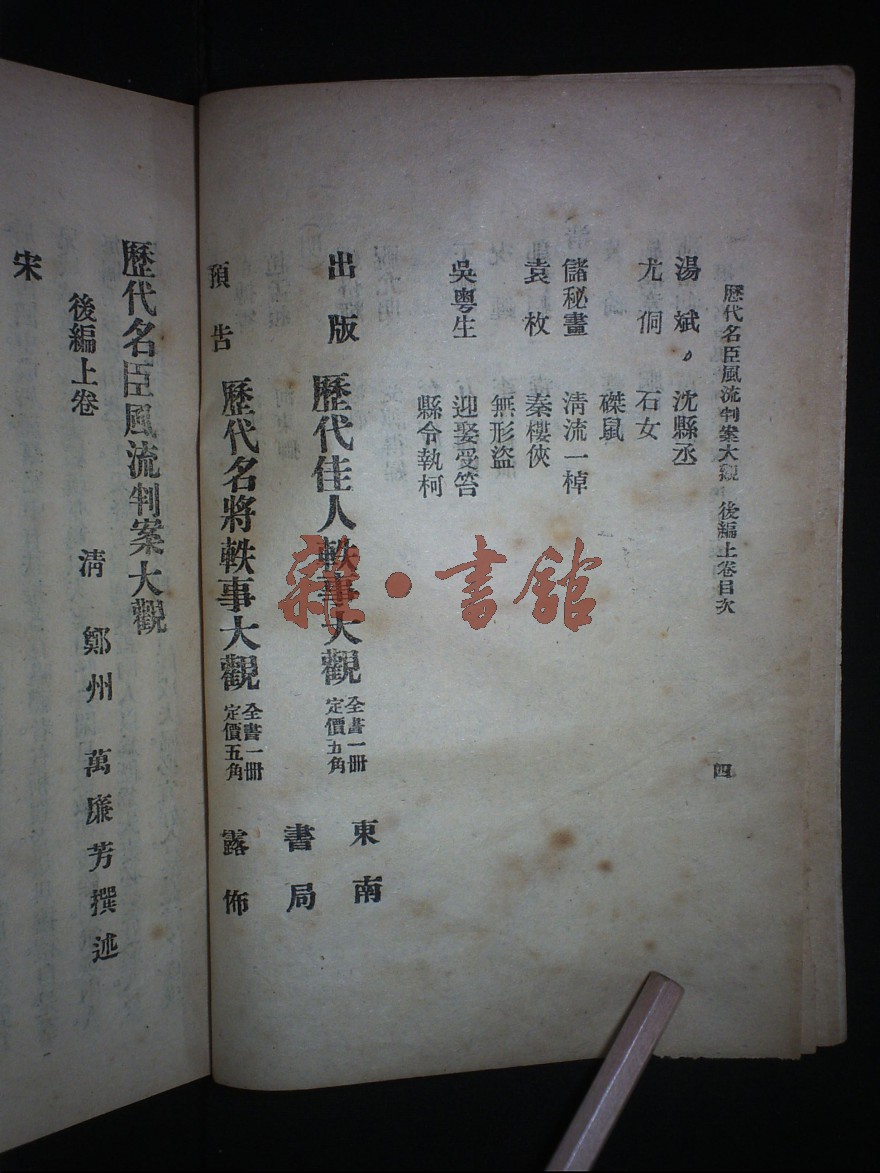 歷代名臣風流判案大觀 後編上卷目次 四
湯斌 沈縣丞
尤侗 石女
磔鼠
儲秘畫 清流一棹
袁枚 秦樓俠
無形盜
吳粵生 迎娶受笞
縣令執柯
出版 歷代佳人軼事大觀 全書一冊 定價五角
預告 歷代名將軼事大觀 全書一冊 定價五角
東南
書局
露佈
雜·書館
歷代名臣風流判案大觀
後編上卷
清 鄭州 萬廉芳撰述
宋